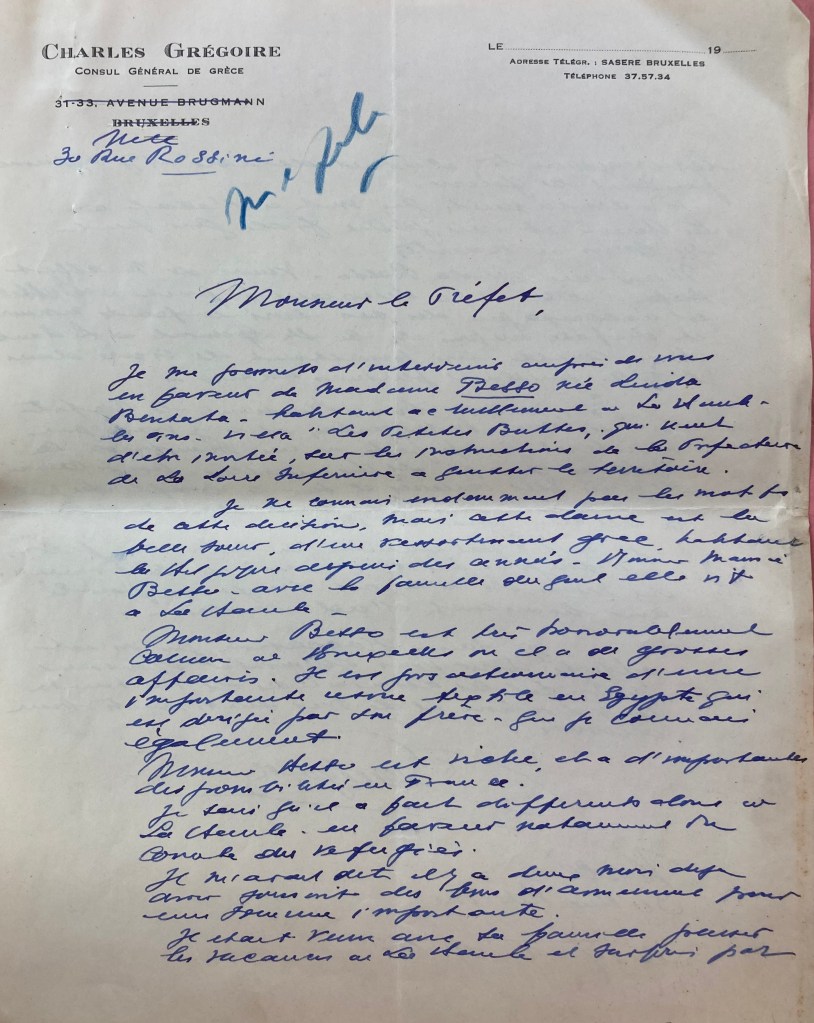 CHARLES GRÉGOIRE
CONSUL GÉNÉRAL DE GRÈCE
31-33, AVENUE BRUGMANN
BRUXELLES
30 Rue Rossini
LE 19
ADRESSE TÉLÉGR. : SASERE BRUXELLES
TÉLÉPHONE 37.57.34
Monsieur le Préfet,
Je me permets d'intervenir auprès de vous
en faveur de Madame Besso née Linda
Bentata - habitant actuellement à La Baule-
les Pins - villa "Les Petites Buttes, qui vient
d'être invitée, sur les instructions de la Préfecture
de La Loire Inférieure à quitter le territoire.
Je ne connais évidemment pas les motifs
de cette décision, mais cette dame est la
belle soeur, d'un ressortissant grec, habitant
la Belgique depuis des années - Monsieur
Besso - avec la famille duquel elle vit
à La Baule -
Monsieur Besso est très honorablement
connu à Bruxelles où il a de grosses
affaires. Il est gros actionnaire d'une
importante usine textile en Egypte qui
est dirigée par son frère - que je connais
également.
Monsieur Besso est riche, et a d'importantes
disponibilités en France.
Je sais qu'il a fait différents dons à
La Baule - en faveur notamment du
Comité des réfugiés.
Il m'avait dit il y a deux mois déjà
avoir souscrit des bons d'armement pour
une somme importante.
Il était venu avec sa famille passer
les vacances à La Baule et surpris par